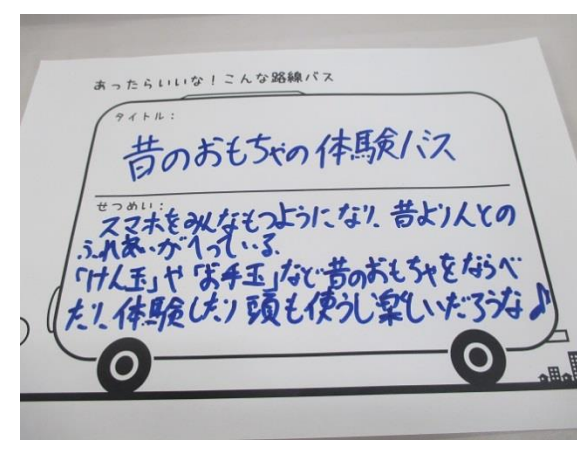 あったらいいな！こんな路線バス
タイトル：
昔のおもちゃの体験バス
せつめい：
スマホをみんなもつようになり、昔より人との
ふれあいがへっている。
「けん玉」や「お手玉」など昔のおもちゃをならべ
たり、体験したり頭も使うし楽しいだろうな♪